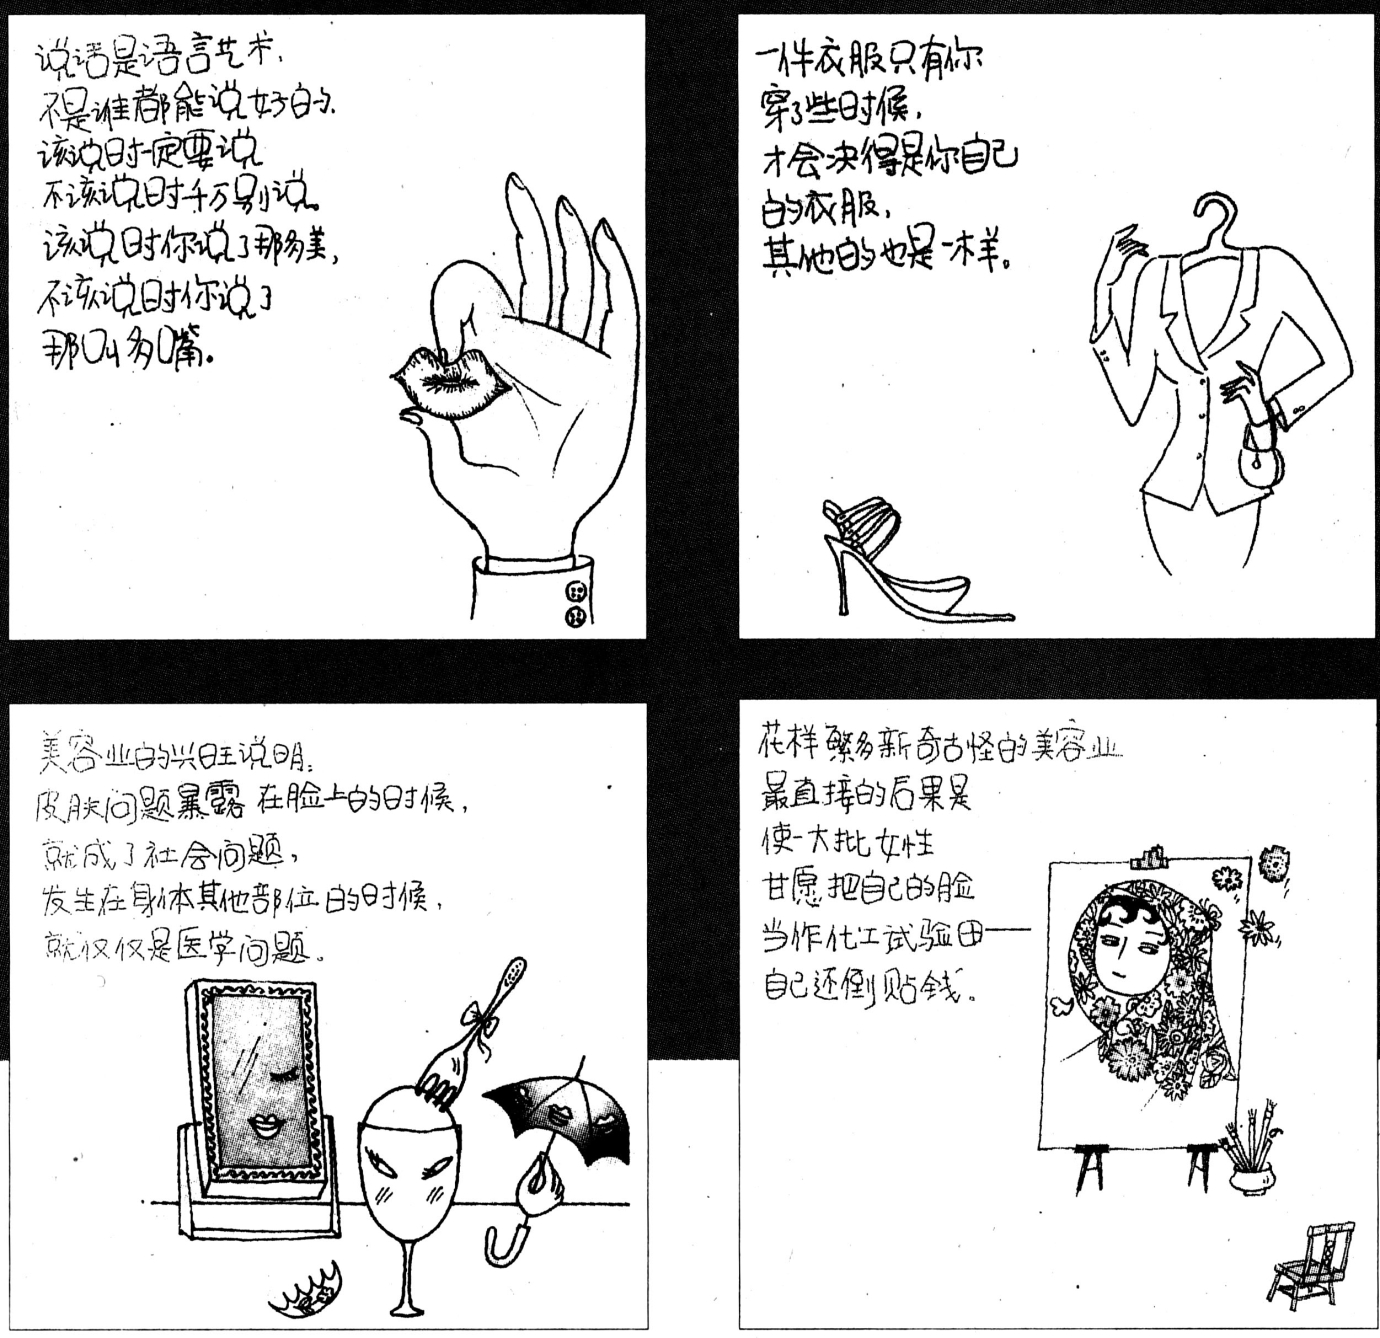 说话是语言艺术，
不是谁都能说好的．
该说时一定要说
不该说时千万别说。
该说时你说了那多美，
不该说时你说了
那叫多嘴。
一件衣服只有你
穿了些时候，
才会决得是你自己
的衣服，
其他的也是一样。
美容业的兴旺说明：
皮肤问题暴露在脸上的时候，
就成了社会问题，
发生在身体其他部位的时候，
就仅仅是医学问题。
花样繁多新奇古怪的美容业
最直接的后果是
使一大批女性
甘愿把自己的脸
当作化工试验田——
自己还倒贴钱。